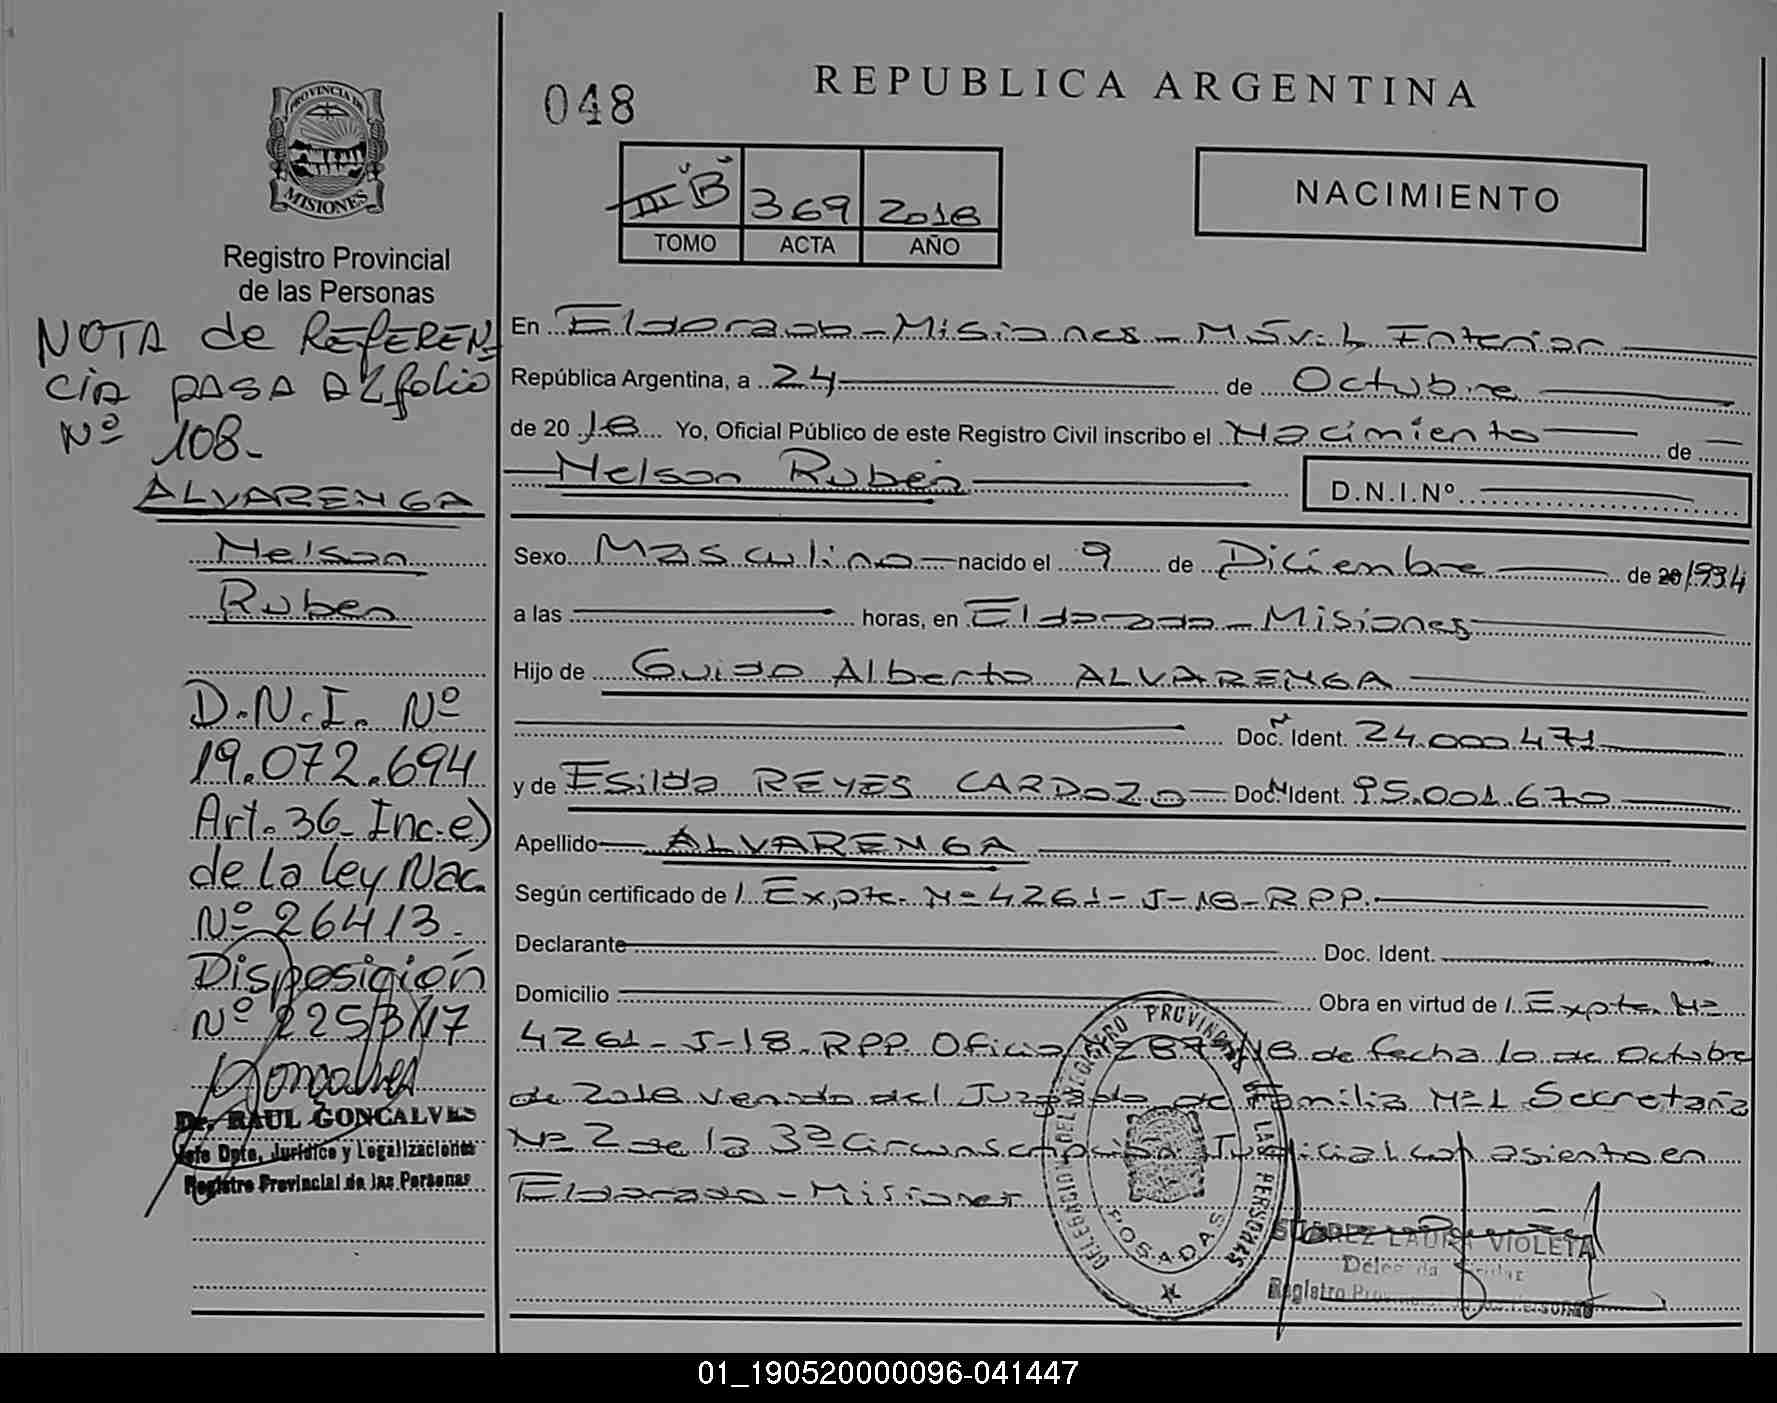 048
REPUBLICA ARGENTINA
PROVINCIA DE
MISIONES
III "B" 369 2018
TOMO ACTA AÑO
NACIMIENTO
Registro Provincial
de las Personas
NOTA de REFEREN
CIA PASA AL folio
Nº 108.-
ALVARENGA
Nelson
Ruben
D.N.I. Nº
19.072.694
Art. 36 Inc. e)
de la Ley Nac.
Nº 26413.-
Disposición
Nº 2253/17
Goncalves
Dr. RAUL GONCALVES
Jefe Dpto. Jurídico y Legalizaciones
Registro Provincial de las Personas
En Eldorado - Misiones - Móvil Interior
República Argentina, a 24 de Octubre
de 2018 Yo, Oficial Público de este Registro Civil inscribo el Nacimiento de
Nelson Ruben D.N.I.Nº
Sexo Masculino nacido el 9 de Diciembre de 20 1994
a las horas, en Eldorado - Misiones
Hijo de Guido Alberto ALVARENGA
Doc. Ident. 24.000.471
y de Esilda REYES CARDOZO Doc. Ident. 95.001.670
Apellido ALVARENGA
Según certificado de / Expte. Nº 4261-J-18-RPP.
Declarante Doc. Ident.
Domicilio Obra en virtud de / Expte. Nº
4261-J-18. RPP. Oficio de fecha 10 de Octubre
de 2018 venido del Juzgado de Familia Nº 1 Secretaría
Nº 2 de la 3ª Circunscripción Judicial con asiento en
Eldorado - Misiones
DELEGACION DEL REGISTRO PROVINCIAL DE LAS PERSONAS
POSADAS
SUAREZ LAURA VIOLETA
Registro Personas
01_190520000096-041447